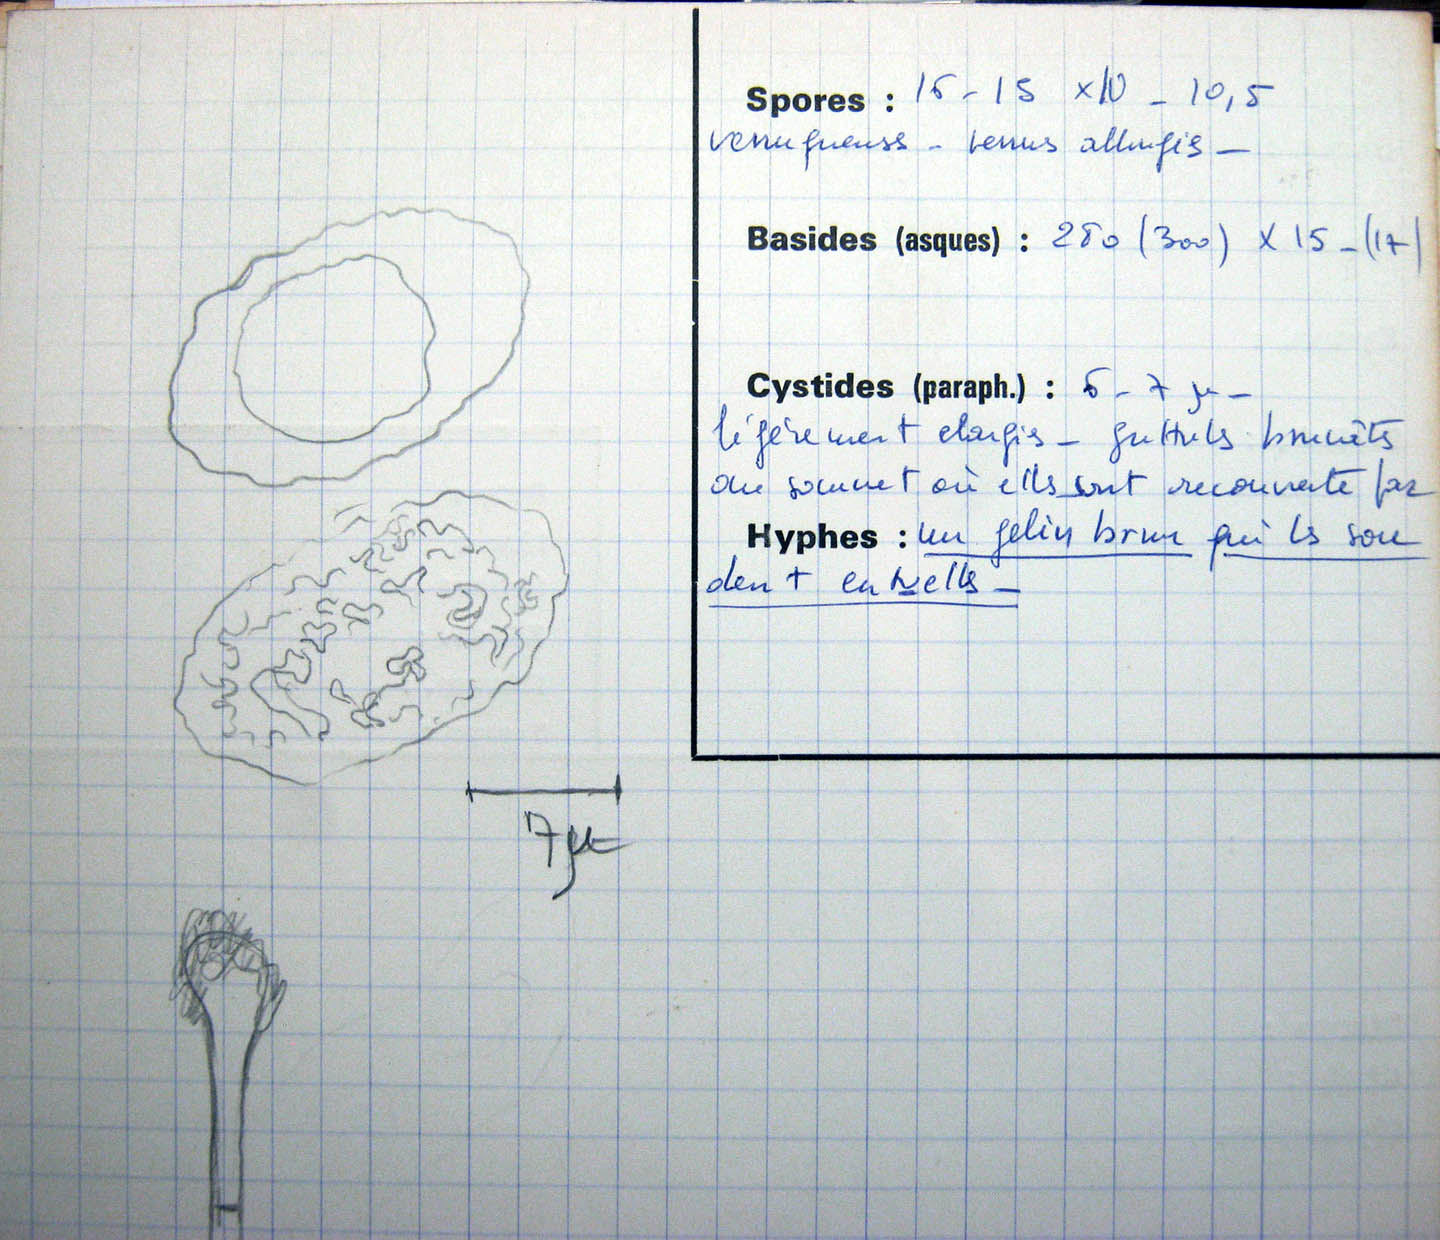 Spores : 16 - 15 × 10 - 10,5
verruqueuses - verrues allongées -
Basides (asques) : 280 (300) × 15 - (17)
Cystides (paraph.) : 6 - 7 µ -
légèrement élargies - brunâtres
au sommet où elles sont recouverte par
Hyphes : un gelin brun qui les sou
dent entre elles -
7 µ